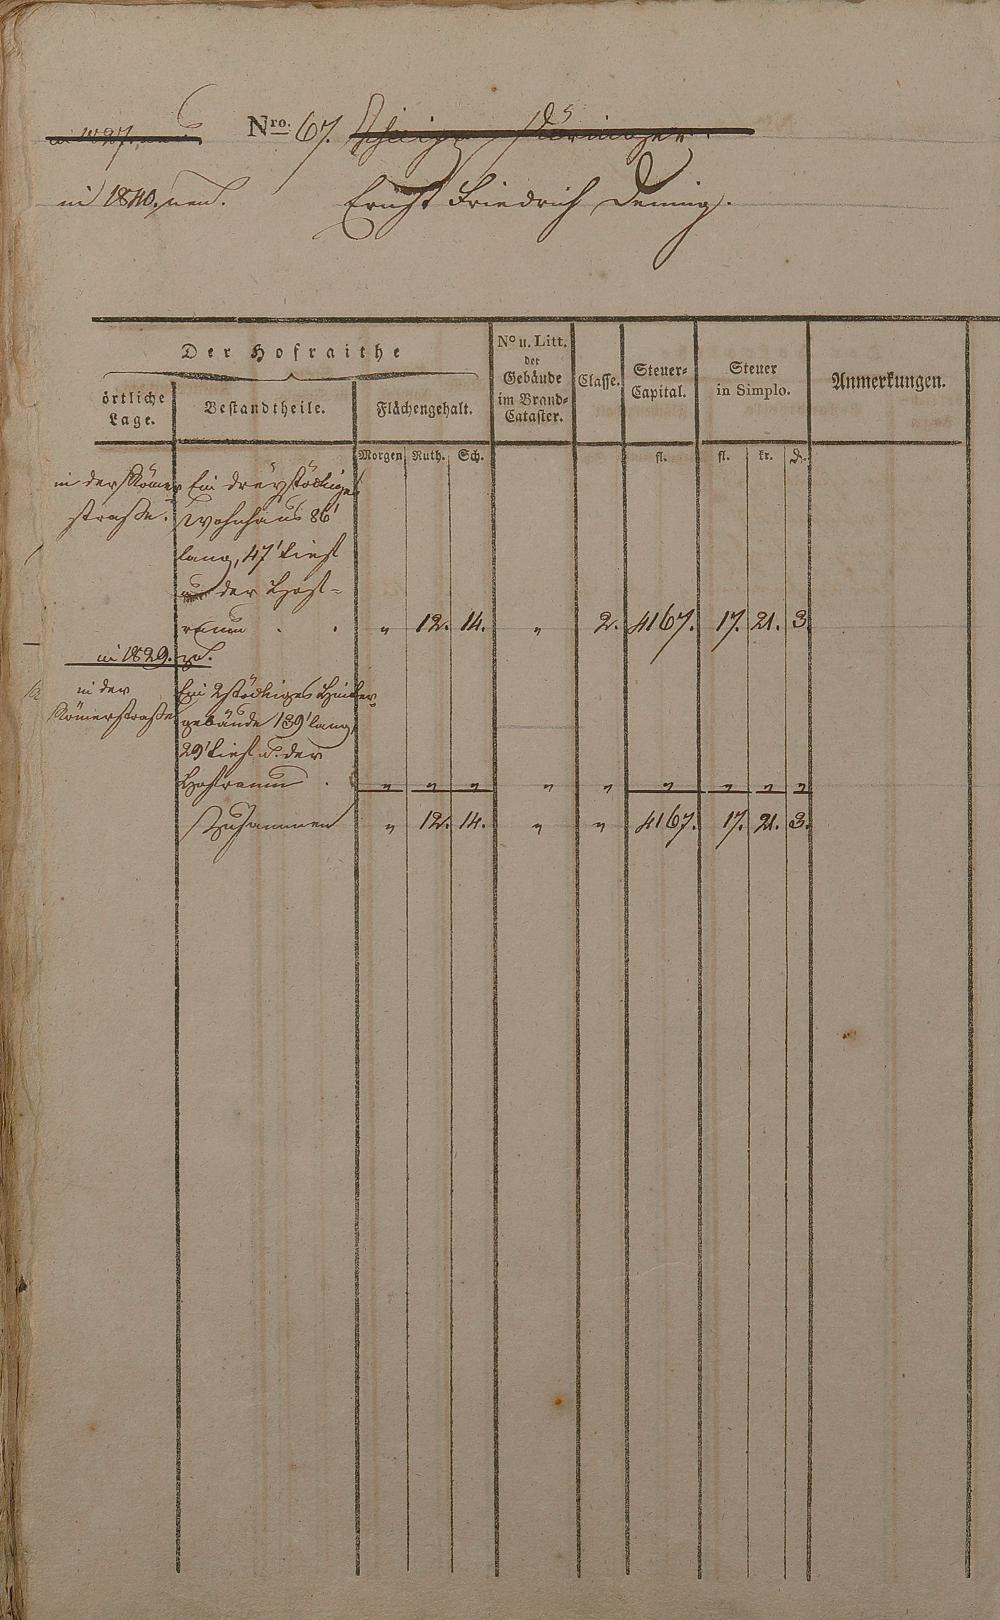 Nro. 67.
in 1840, neu. Ernst Friedrich Deming.
Der Hofraithe
örtliche Lage.
Bestandtheile.
Flächengehalt.
No u. Litt. der Gebäude im Brand-Cataster.
Classe.
Steuer-Capital.
Steuer in Simplo.
Anmerkungen.
Morgen Ruth. Sch. fl. fl. kr. d.
in der Römer Ein dreystöckiges
straße. Wohnhaus 86'
lang, 47' tief
der Hof-
raum . . „ 12. 14. „ 2. 4167. 17. 21. 3.
in 1829.
in der Ein 2stöckiges Hinter
Römerstraße gebäude 139' lang,
29' tief u. der
Hofraum . „ „ „ „ „ „ „ „ „
Zusammen „ 12. 14. „ „ 4167. 17. 21. 3.